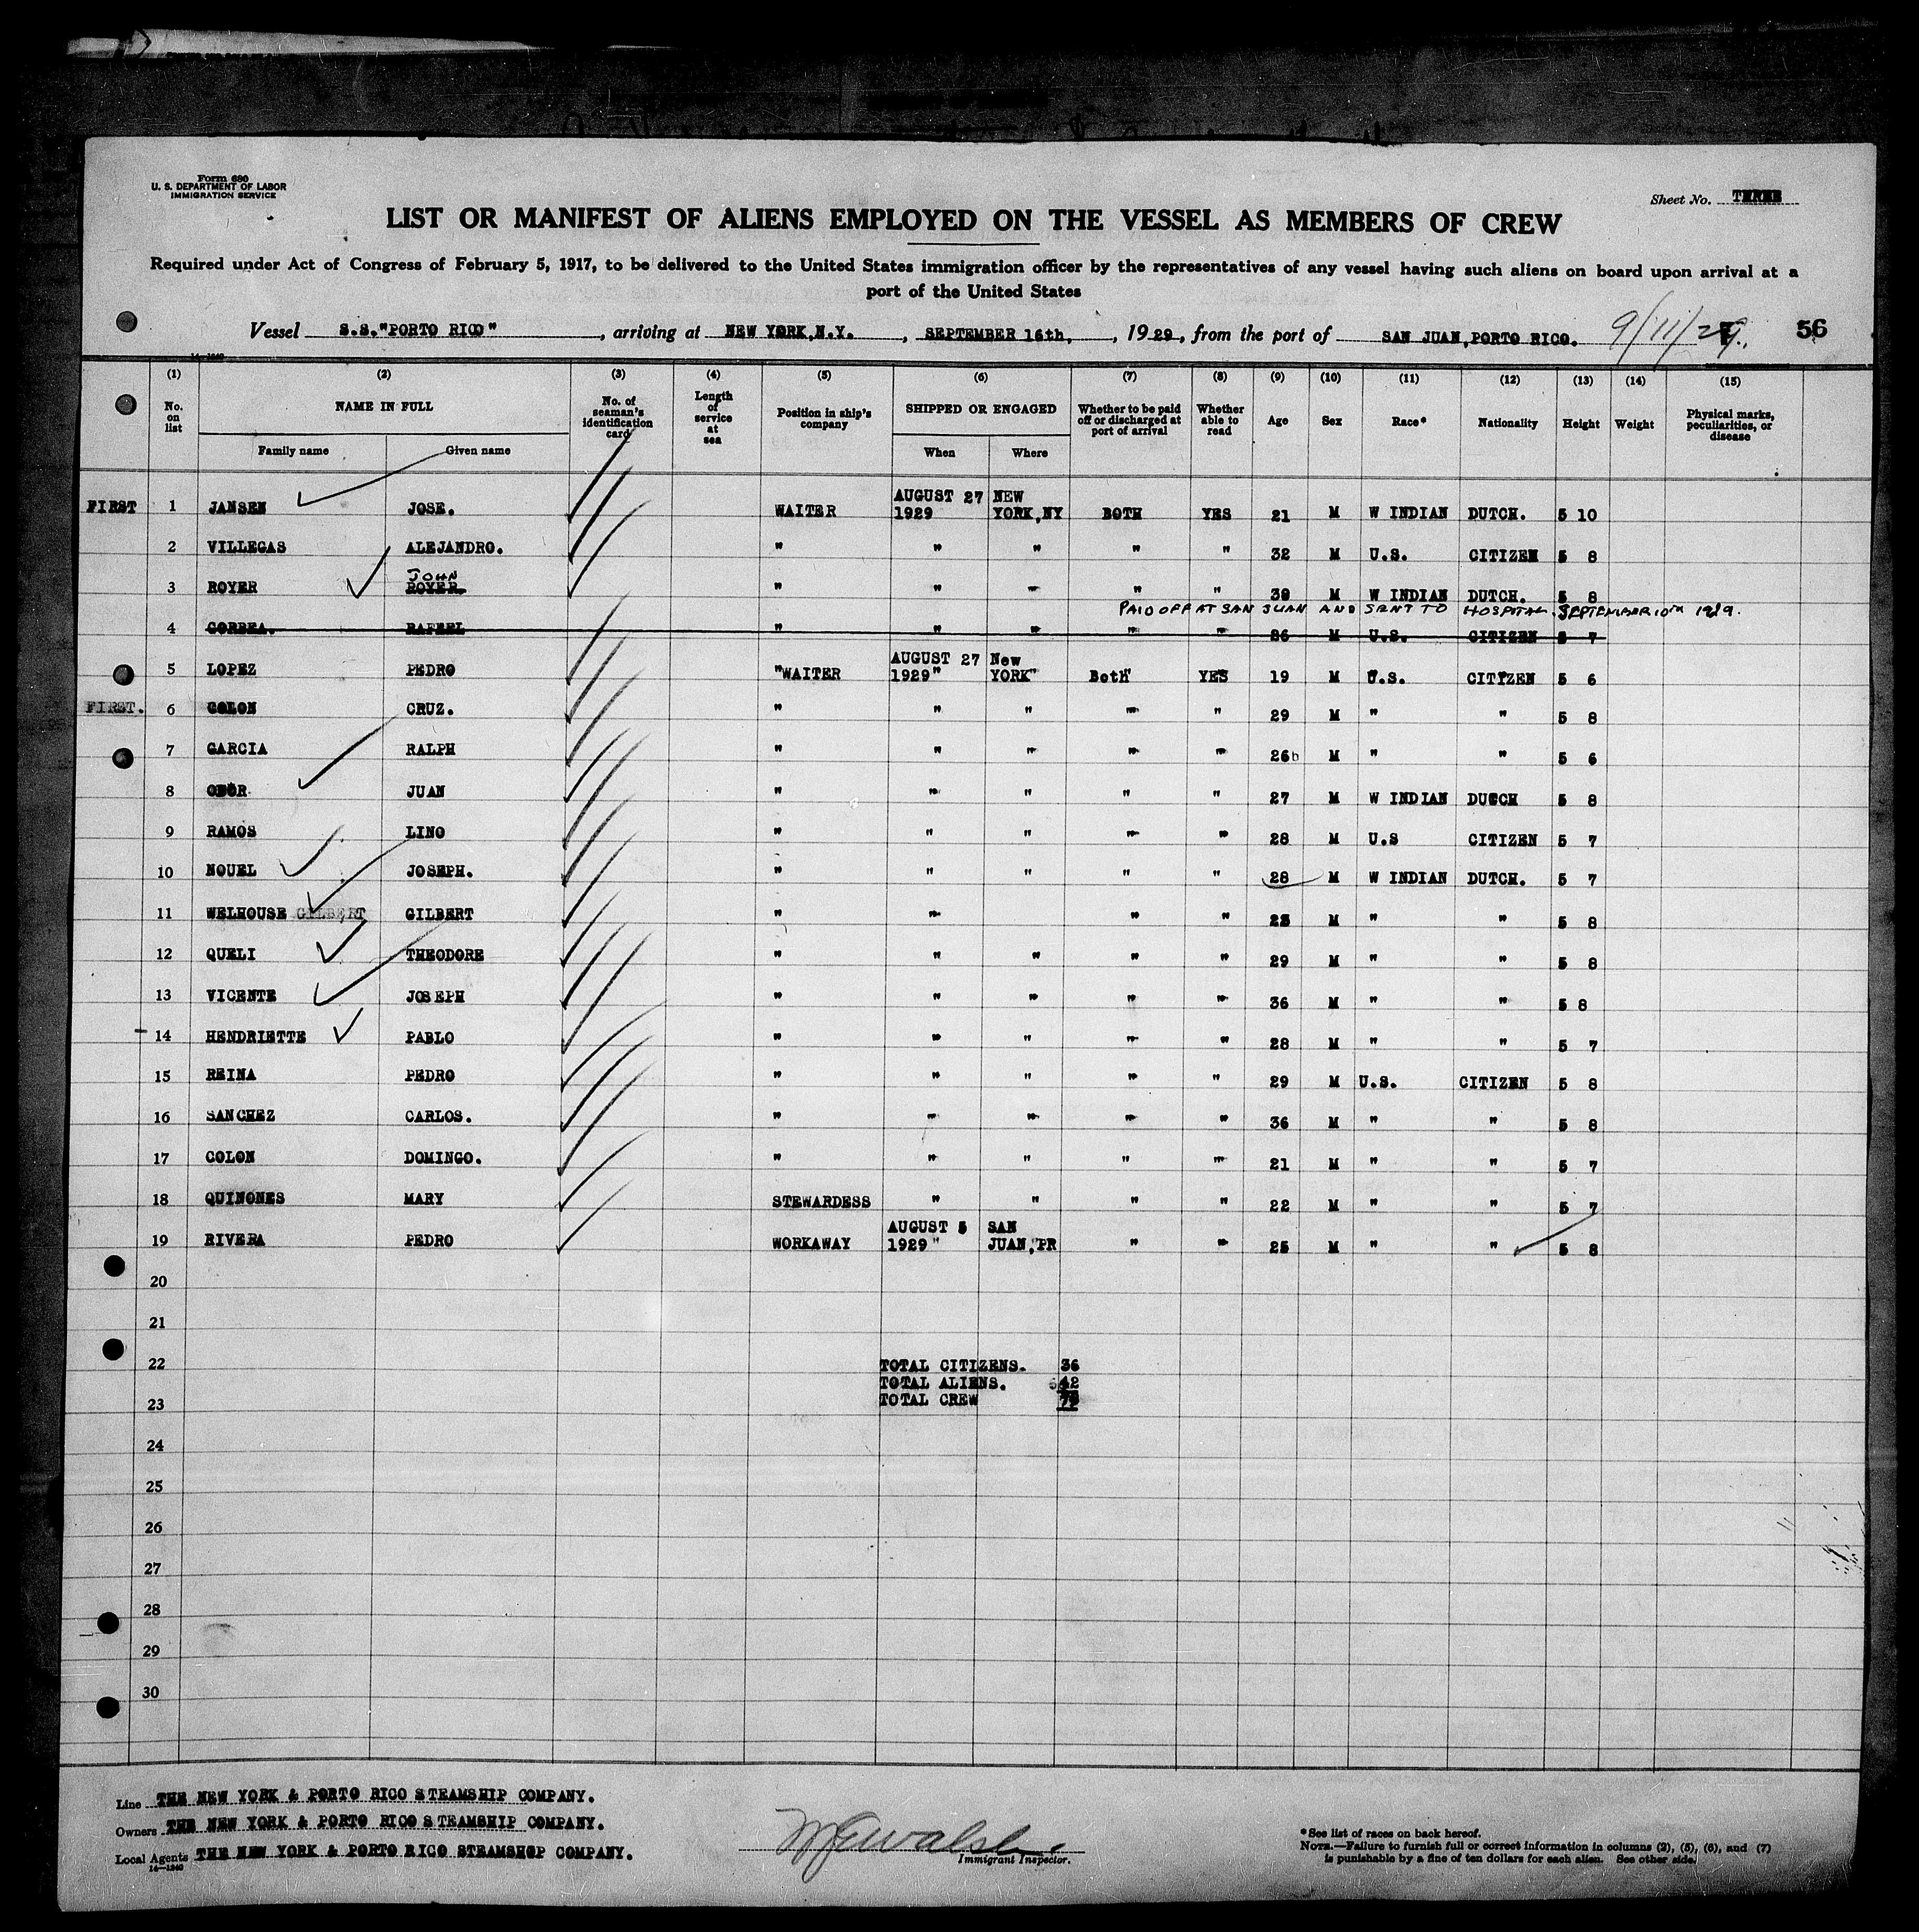 Form 680
U. S. DEPARTMENT OF LABOR
IMMIGRATION SERVICE
Sheet No. THREE
LIST OR MANIFEST OF ALIENS EMPLOYED ON THE VESSEL AS MEMBERS OF CREW
Required under Act of Congress of February 5, 1917, to be delivered to the United States immigration officer by the representatives of any vessel having such aliens on board upon arrival at a
port of the United States
Vessel S.S."PORTO RICO", arriving at NEW YORK,N.Y., SEPTEMBER 16th, 1929, from the port of SAN JUAN,PORTO RICO. 9/11/29. 56
14-1240
(1) (2) (3) (4) (5) (6) (7) (8) (9) (10) (11) (12) (13) (14) (15)
No. on list NAME IN FULL No. of seaman's identification card Length of service at sea Position in ship's company SHIPPED OR ENGAGED Whether to be paid off or discharged at port of arrival Whether able to read Age Sex Race* Nationality Height Weight Physical marks, peculiarities, or disease
Family name Given name When Where
FIRST 1 JANSEN JOSE. WAITER AUGUST 27 1929 NEW YORK,NY BOTH YES 21 M W INDIAN DUTCH. 5 10
2 VILLEGAS ALEJANDRO. " " " " " 32 M U.S. CITIZEN 5 8
JOHN
3 ROYER ROYER " " " " " 39 M W INDIAN DUTCH. 5 8
PAID OFF AT SAN JUAN AND SENT TO HOSPITAL SEPTEMBER 10TH 1929.
4 CORREA. RAFAEL " " " " " 26 M U.S. CITIZEN 5 7
5 LOPEZ PEDRO "WAITER AUGUST 27 1929" New YORK" Both" YES 19 M U.S. CITIZEN 5 6
FIRST. 6 COLON CRUZ. " " " " " 29 M " " 5 8
7 GARCIA RALPH " " " " " 26 M " " 5 6
8 JUAN " " " " " 27 M W INDIAN DUTCH 5 8
9 RAMOS LINO " " " " " 28 M U.S CITIZEN 5 7
10 NOUEL JOSEPH. " " " " " 28 M W INDIAN DUTCH. 5 7
11 WELHOUSE GILBERT GILBERT " " " " M " " 5 8
12 QUELI THEODORE " " " " " 29 M " " 5 8
13 VICENTE JOSEPH " " " " " 36 M " " 5 8
14 HENDRIETTE PABLO " " " " " 28 M " " 5 7
15 REINA PEDRO " " " " " 29 M U.S. CITIZEN 5 8
16 SANCHEZ CARLOS. " " " " " 36 M " " 5 8
17 COLON DOMINGO. " " " " " 21 M " " 5 7
18 QUINONES MARY STEWARDESS " " " " 22 M " " 5 7
19 RIVERA PEDRO WORKAWAY AUGUST 5 1929" SAN JUAN,"PR " " 25 M " " 5 8
20
21
22 TOTAL CITIZENS. 36
TOTAL ALIENS. 42
23 TOTAL CREW
24
25
26
27
28
29
30
Line THE NEW YORK & PORTO RICO STEAMSHIP COMPANY.
Owners THE NEW YORK & PORTO RICO STEAMSHIP COMPANY.
Local Agents THE NEW YORK & PORTO RICO STEAMSHOP COMPANY.
14-1240
Immigrant Inspector.
*See list of races on back hereof.
NOTE.—Failure to furnish full or correct information in columns (2), (5), (6), and (7)
is punishable by a fine of ten dollars for each alien. See other side.